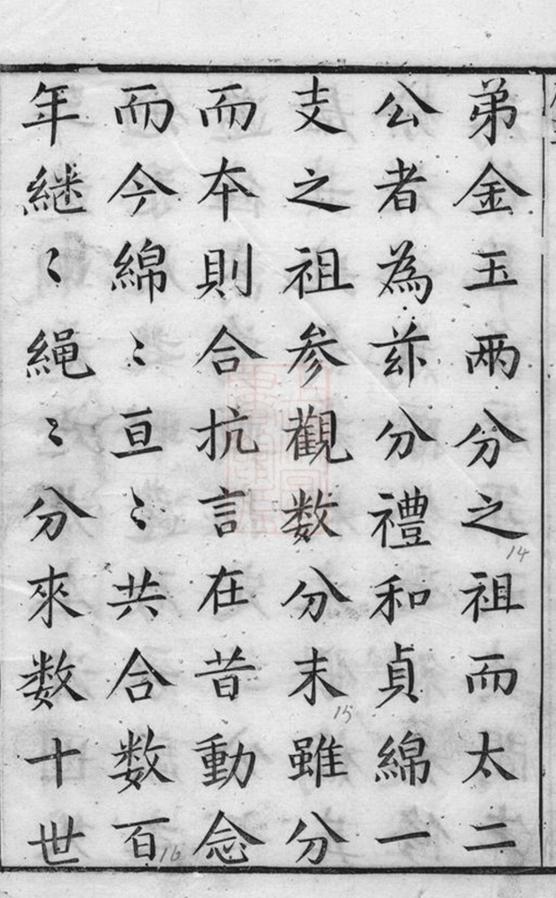 弟金玉兩分之祖而太二
公者為茲分禮和貞綿一
支之祖参觀数分末雖分
而本則合抗言在昔動念
而今綿〻亘〻共合数百
年継〻縄〻分來数十世
14
15
16